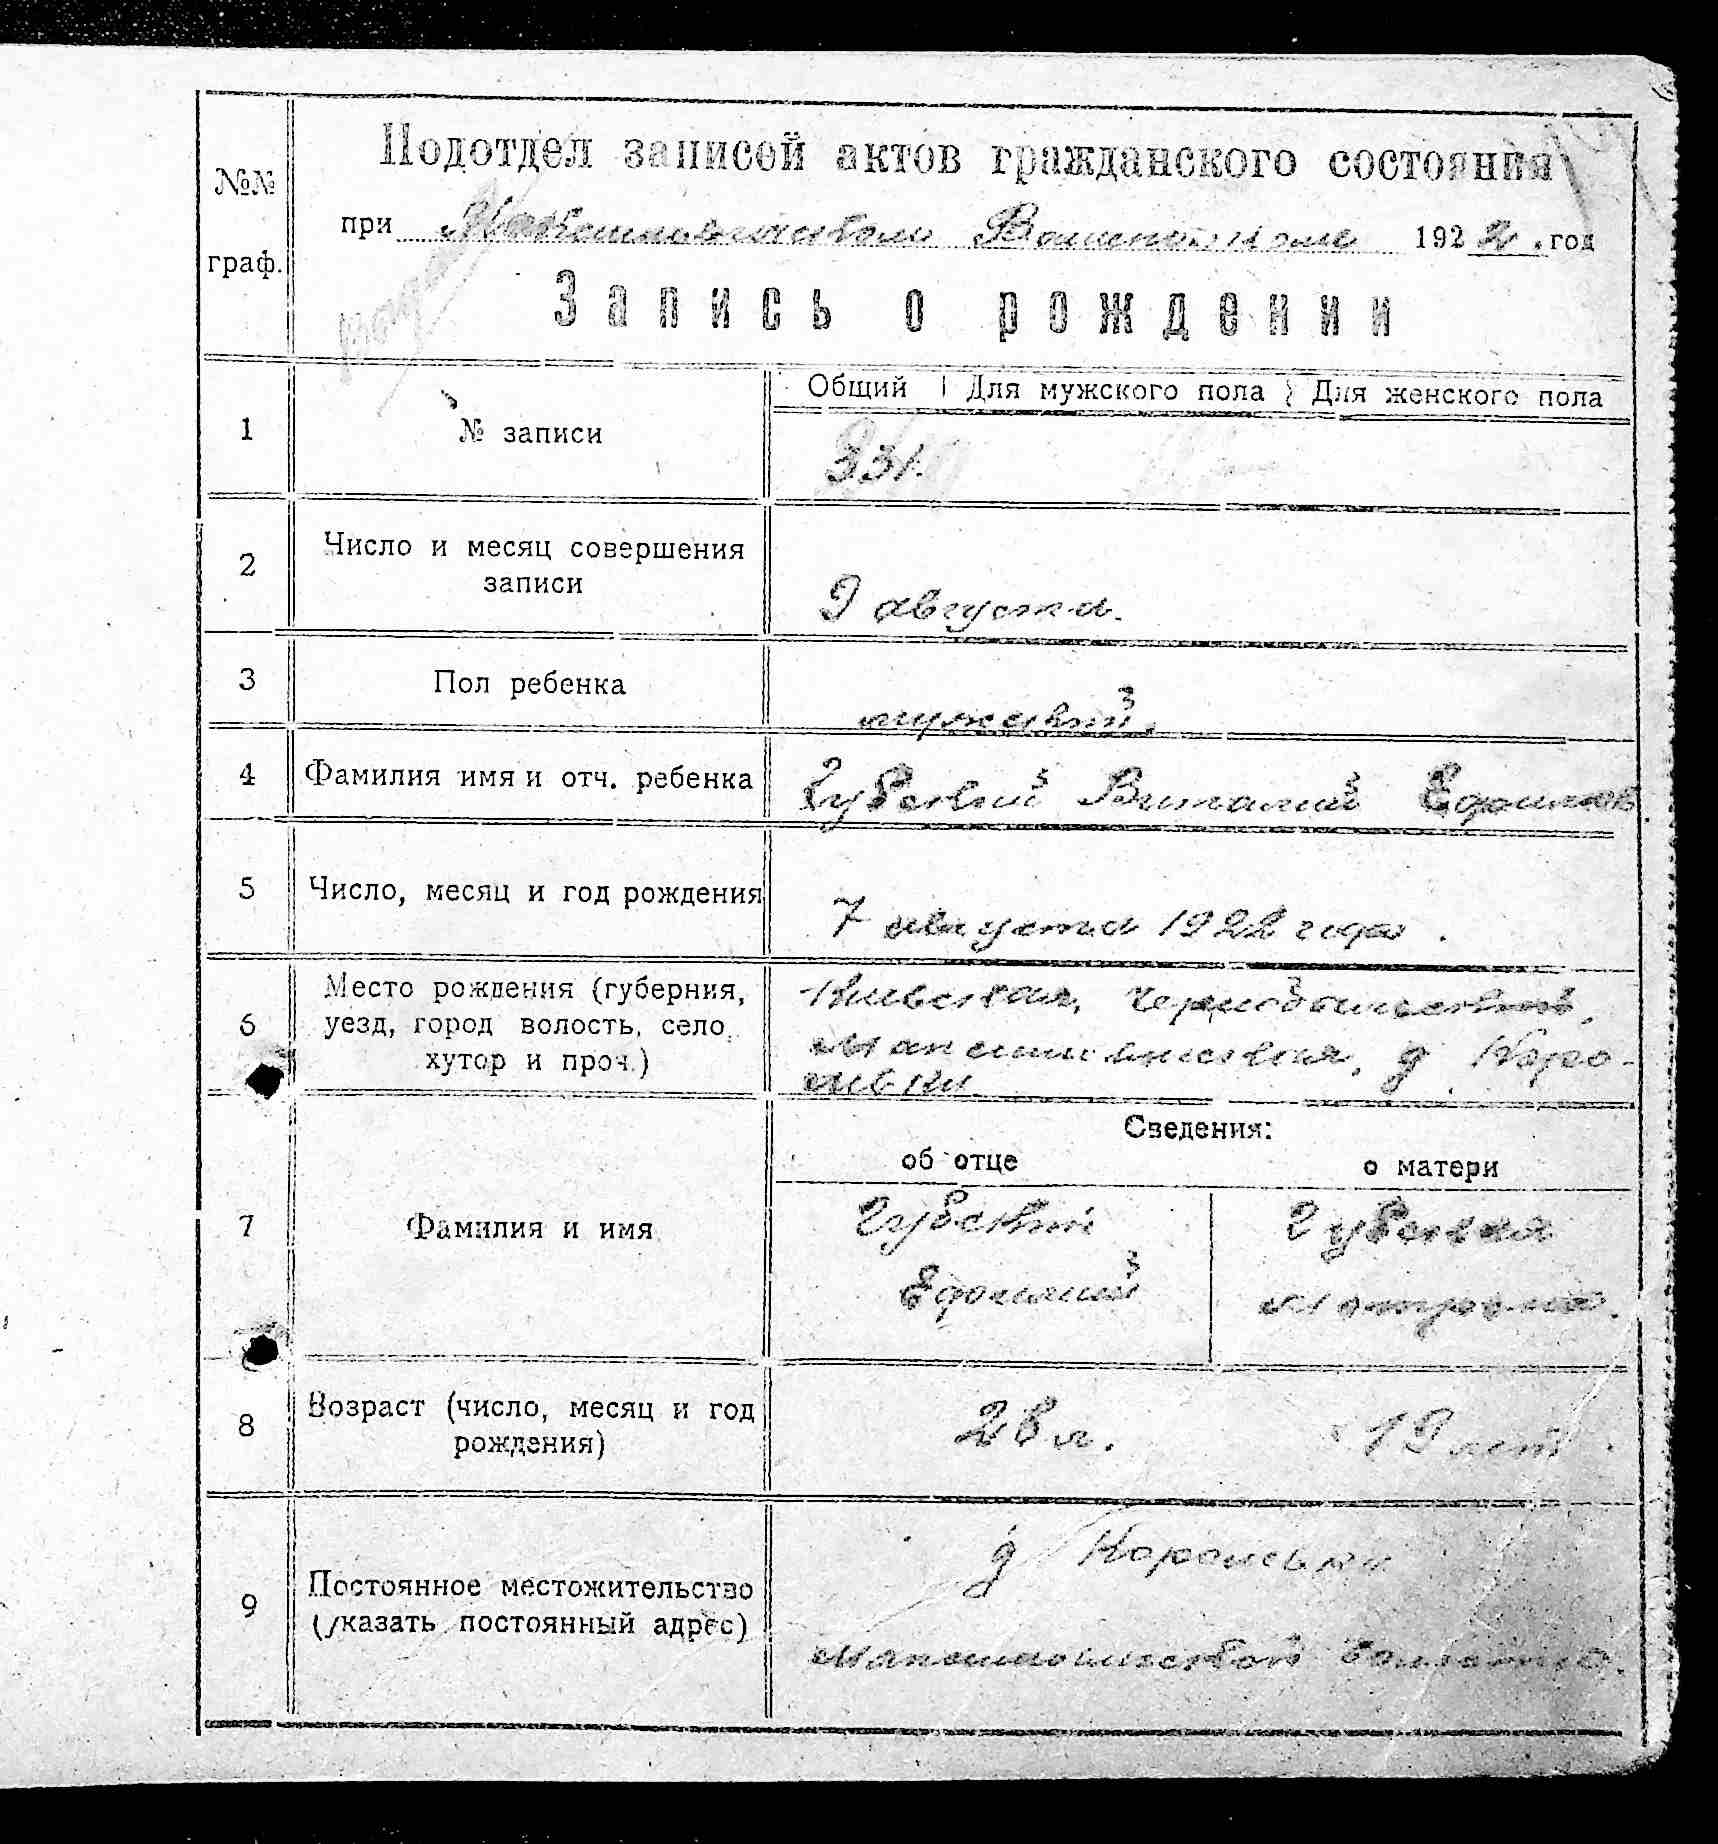 №№
граф.
Подотдел записей актов гражданского состояния
при 1922 год
Запись о рождении
Общий Для мужского пола Для женского пола
1 № записи 331.
2 Число и месяц совершения
записи
9 августа.
3 Пол ребенка
мужеский.
4 Фамилия имя и отч. ребенка Губский Виталий
5 Число, месяц и год рождения
7 августа 1922 года.
6 Место рождения (губерния,
уезд, город волость, село,
хутор и проч.)
Киевская, Чернобыльский,
д. Коро-
Сведения:
об отце о матери
7 Фамилия и имя
Губский Губская
Мотрона.
8 Возраст (число, месяц и год
рождения)
26 л. 19 лет
9 Постоянное местожительство
(указать постоянный адрес)
д